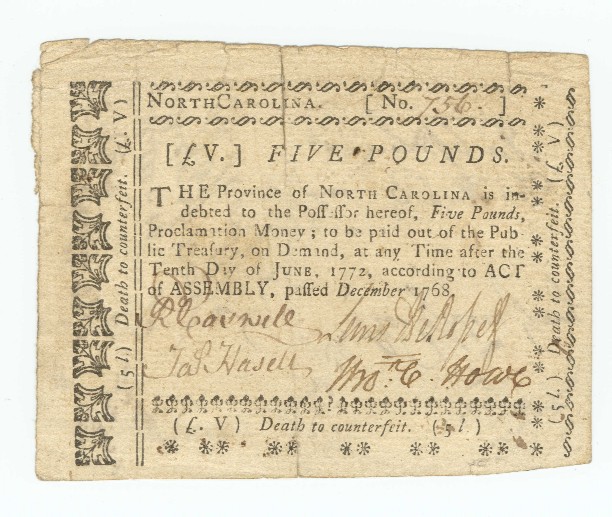 NORTH CAROLINA. [ No. 756. ]
[ £ V. ] FIVE POUNDS.
THE Province of NORTH CAROLINA is in-
debted to the Poſſeſſor hereof, Five Pounds,
Proclamation Money; to be paid out of the Pub-
lic Treaſury, on Demand, at any Time after the
Tenth Day of JUNE, 1772, according to ACT
of ASSEMBLY, paſſed December 1768
RCaswell
Jas Hasell
Thos. C. Howe
(£. V) Death to counterfeit. (5l)
(5l) Death to counterfeit. (£. V)
(5l.) Death to counterfeit. (£ V)